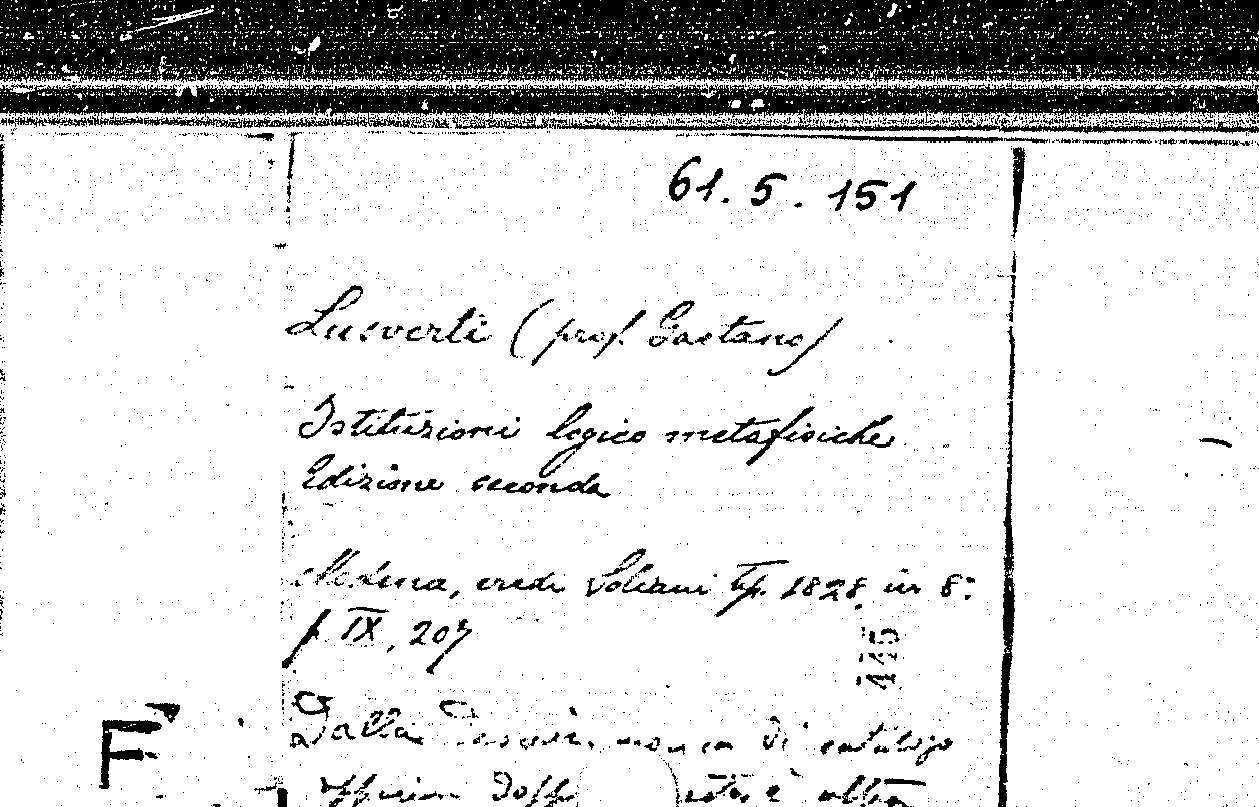 61.5.151
Lusverti (prof. Gaetano)
Istituzioni logico metafisiche
Edizione seconda
Modena, eredi Soliani tip. 1828, in 8°
p. IX, 207
445
Dalla di catalogo
F